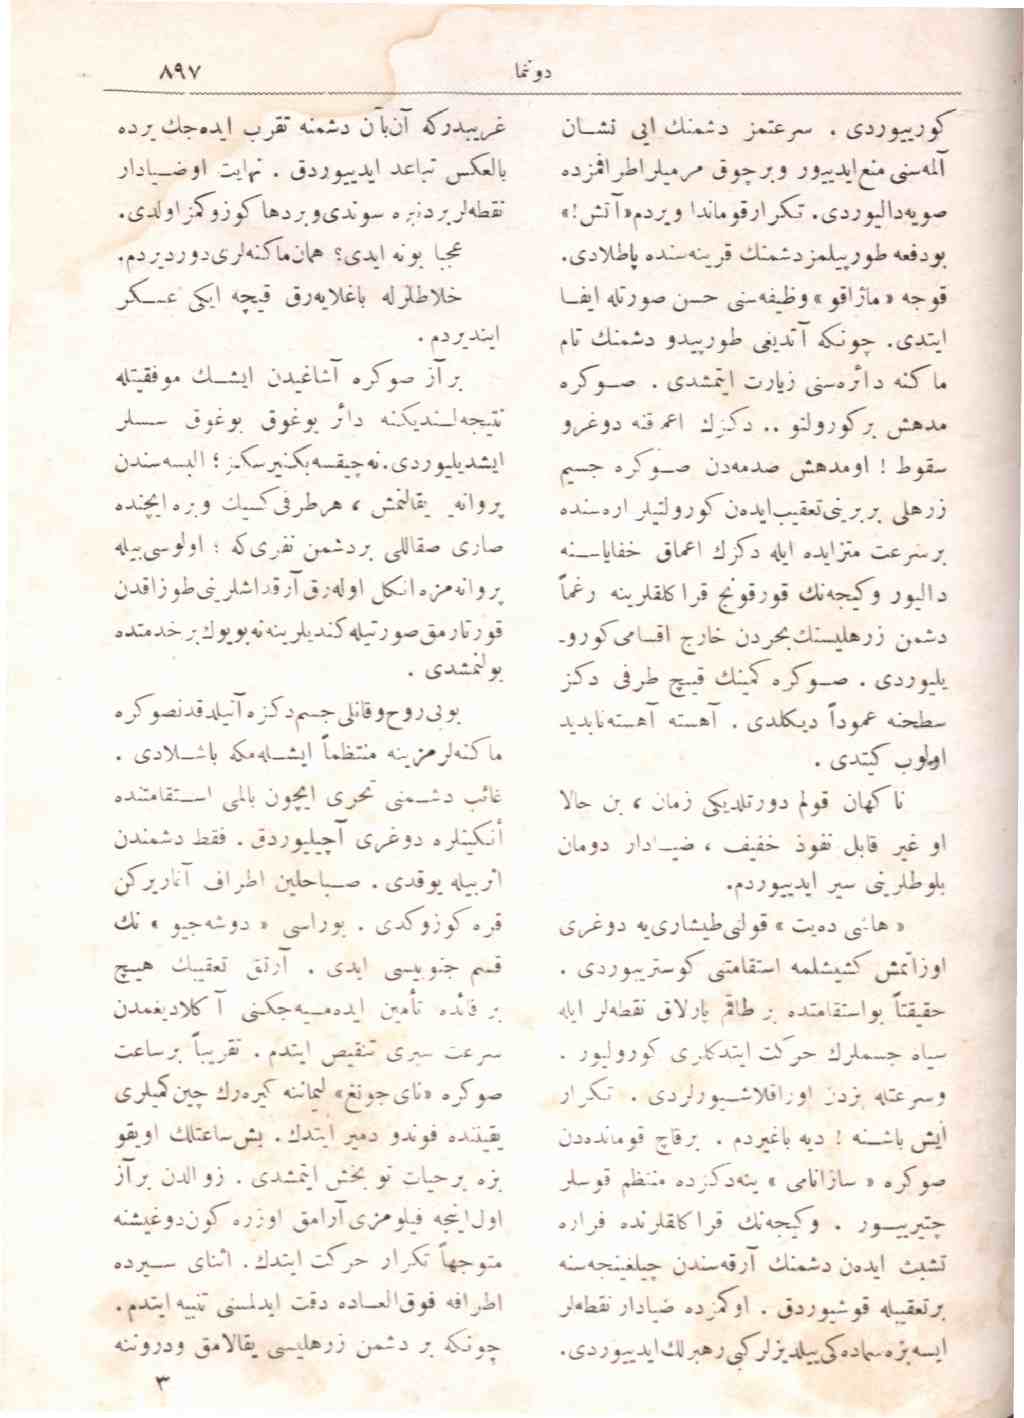 دوننما
٨٩٧
كورييوردى . سرعتمز دشمنك ايى نشان
آلمه‌سنى منع ايدييور وبرچوق مرميلر اطرافمزده
صويه داليوردى. تكرار قوماندا ويردم «آتش!»
بودفعه طورپيلمز دشمنك قرينه‌سنده پاطلادى.
قوجه «ماژاقو» وظيفه‌سنى حسن صورتله ايفا
ايتدى. چونكه آتديغى طورپيدو دشمنك تام
ماكنه دائره‌سنى زيارت ايتمشدى . صوكره
مدهش بر كورولتو .. دكزك اعماقنه دوغرو
سقوط ! او مدهش صدمه‌دن صوكره جسيم
زرهلى بربرينى تعقيب ايده‌ن كورولتيلر اره‌سنده
بر سرعت متزايده ايله دكزك اعماق خفاياسنه
داليور وكيجه‌نك قورقونج قراكلقلرينه رغماً
دشمن زرهليسنك بحردن خارج اقسامى كورو-
يليوردى . صوكره كمينك قيچ طرفى دكز
سطحنه عموداً ديكلدى . آهسته آهسته ناپديد
اولوب كيتدى .
ناكهان قولم دورتلديكى زمان ، بن حالا
او غير قابل نفوذ خفيف ، ضيادار دومان
بلوطلرينى سير ايدييوردم.
« هانى ده‌يت » قولنى طيشارى‌يه دوغرى
اوزاتمش كشيشلمه استقامتنى كوستريیوردى .
حقيقتاً بو استقامتده بر طاقم پارلاق نقطه‌لر ايله
سياه جسملرك حركت ايتدكلرى كوروليور .
وسرعتله بزدن اوزاقلاشيورلردى . تكرار
آيش باشنه ! ديه باغيردم . برقاچ قومانده‌دن
صوكره « سازانامى » ينه دكزده منتظم قوسلر
چتيرييور . وكيجه‌نك قراكلقلرنده فراره
تشبث ايده‌ن دشمنك آرقه‌سندن چيلغينجه‌سنه
بر تعقيبله قوشيوردق . اوكمزده ضيادار نقطه‌لر
ايسه بزه سماده‌كى ييلديزلر كبى رهبرلك ايدييوردى.
غريبدركه آن بآن دشمنه تقرب ايده‌جك يرده
بالعكس تباعد ايدييوردق . نهايت اوضيادار
نقطه‌لر بردنبره سوندى وبردها كوزوكمز اولدى.
عجبا بو نه ايدى؟ همان ماكنه‌لرى دورديردم.
خلاطلرله باغلايه‌رق قيچه ايكى عسكر
اينديردم .
بر آز صوكره آشاغيدن ايشك موفقيتله
نتيجه‌لنديكنه دائر بوغوق بوغوق سسلر
ايشديليوردى. نه چيقسه بكنيرسكز ؛ البسه‌سندن
پروانه‌يه يقالنمش ، هر طرفى كسيك وبره ايچنده
صارى صقاللى بر دشمن نفرى كه ؛ اولوسى بيله
پروانه‌مزه انكل اوله‌رق آرقداشلرينى طوزاقدن
قورتارمق صورتيله كنديلرينه نه بويوك بر خدمتده
بولنمشدى .
بو بى روح وقانلى جسم دكزه آتيلدقدن صوكره
ماكنه‌لرمز ينه منتظماً ايشله‌مكه باشلادى .
غائب دشمنى تحرى ايچون بالمى استقامتنده
أنكينلره دوغرى آچيليوردق . فقط دشمندن
اثر بيله يوقدى . صباحلين اطراف آغاريركن
قره كوزوكدى . بوراسى « دوشه‌جيو » نك
قسم جنوبيسى ايدى . آرتق تعقيبك هيچ
بر فائده تأمين ايده‌ميه‌جكنى آكلاديغمدن
سرعت سيرى تنقيص ايتدم . تقريباً بر ساعت
صوكره «ناى جونغ» ليماننه كيره‌رك چين كميلرى
يقيننده فوندو دمير ايتدك. بش ساعتلك اويقو
بزه بر حيات نو بخش ايتمشدى . زوالدن بر آز
اول اينجه فيلومزى آرامق اوزره كون دوغيشنه
متوجهاً تكرار حركت ايتدك. اثناى سيرده
اطرافه فوق‌العاده دقت ايدلمسنى تنبيه ايتدم.
چونكه بر دشمن زرهليسى يقالامق ودروننه
٣